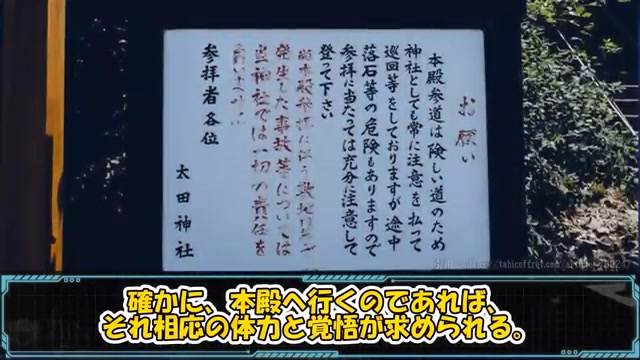 お願い
本殿参道は険しい道のため
神社としても常に注意を払って
巡回等をしておりますが 途中
落石等の危険もありますので
参拝に当たっては充分に注意して
登って下さい
発生した事故等については
当神社では一切の責任を
参拝者各位
太田神社
確かに、本殿へ行くのであれば、
それ相応の体力と覚悟が求められる。